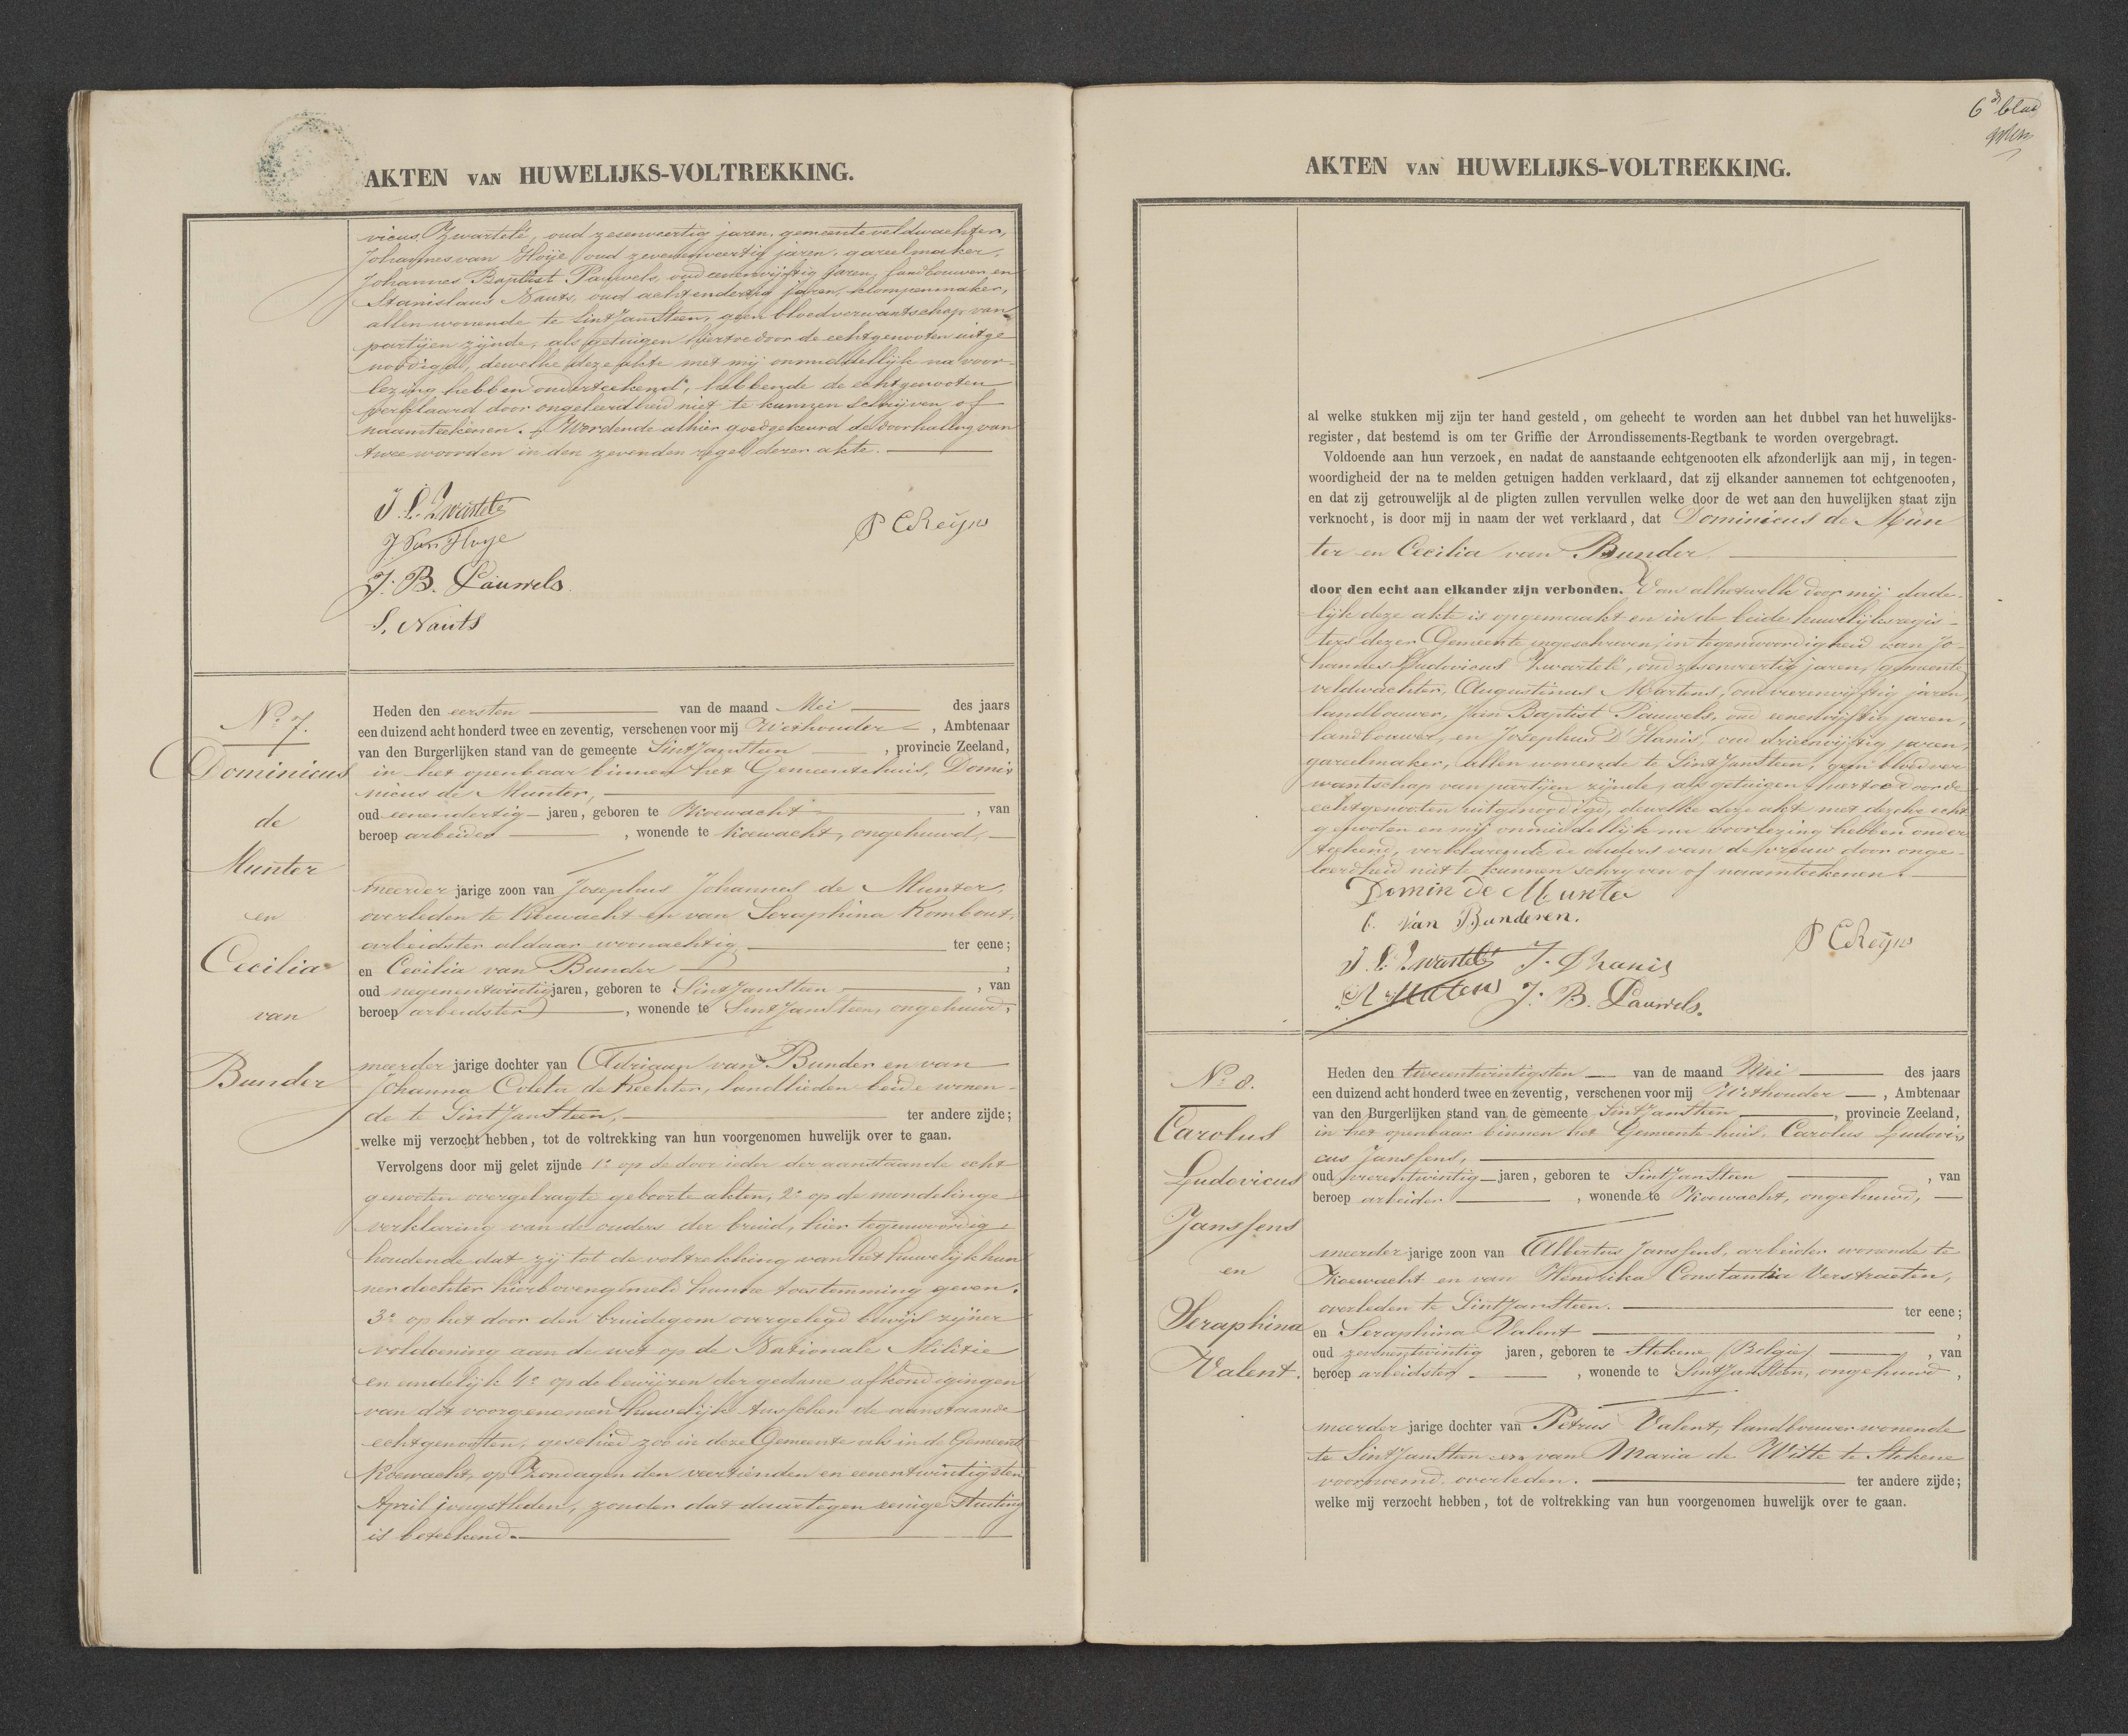 AKTEN VAN HUWELIJKS-VOLTREKKING.
vicus Zwartelé, oud zesenveertig jaren, gemeente veldwachter,
Johannes van Hoije oud zevenenveertig jaren, gareelmaker,
Johannes Baptist Pauwels, oud eenenvijftig jaren, landbouwer en
Stanislaus Nauts, oud achtendertig jaren, klompenmaker,
allen wonende te Sint Jansteen, geen bloedverwantschap van
partijen zijnde, als getuigen hiertoe door de echtgenooten uitge
noodigd, dewelke deze akte met mij onmiddellijk na voor-
lezing hebben onderteekend, hebbende de echtgenooten
verklaard door ongeleerdheid niet te kunnen schrijven of
naamteekenen. Wordende alhier goedgekeurd de doorhaling van
twee woorden in den zevenden regel dezer akte.
J. L. Zwartelé
J Van Hoye
P C Reijns
J. B. Pauwels
S. Nauts
No. 7.
Dominicus
de
Munter
en
Cecilia
van
Bunder
Heden den eersten van de maand Mei des jaars
een duizend acht honderd twee en zeventig, verschenen voor mij Wethouder, Ambtenaar
van den Burgerlijken stand van de gemeente Sint Jansteen, provincie Zeeland,
in het openbaar binnen het Gemeentehuis, Domi-
nicus de Munter,
oud eenendertig jaren, geboren te Koewacht, van
beroep arbeider, wonende te Koewacht, ongehuwd,
meerder jarige zoon van Josephus Johannes de Munter,
overleden te Koewacht en van Seraphina Rombout,
arbeidster aldaar woonachtig ter eene;
en Cecilia van Bunder,
oud negenentwintig jaren, geboren te Sint Jansteen, van
beroep arbeidster, wonende te Sint Jansteen, ongehuwd,
meerder jarige dochter van Adriaan van Bunder en van
Johanna Coleta de Rechter, landlieden beide wonen-
de te Sint Jansteen, ter andere zijde;
welke mij verzocht hebben, tot de voltrekking van hun voorgenomen huwelijk over te gaan.
Vervolgens door mij gelet zijnde 1o op de door ieder der aanstaande echt
genooten overgebragte geboorte akten, 2o op de mondelinge
verklaring van de ouders der bruid, hier tegenwoordig
houdende dat zij tot de voltrekking van het huwelijk hun
ner dochter hierboven gemeld hunne toestemming geven.
3o op het door den bruidegom overgelegd bewijs zijner
voldoening aan de wet op de Nationale Militie
en eindelijk 4o op de bewijzen der gedane afkondigingen
van dit voorgenomen huwelijk tusschen de aanstaande
echtgenooten, geschied zoo in deze Gemeente als in de Gemeente
Koewacht, op Zondagen den veertienden en eenentwintigsten
April jongstleden, zonder dat daartegen eenige stuiting
is beteekend.
6e blad
AKTEN VAN HUWELIJKS-VOLTREKKING.
al welke stukken mij zijn ter hand gesteld, om gehecht te worden aan het dubbel van het huwelijks-
register, dat bestemd is om ter Griffie der Arrondissements-Regtbank te worden overgebragt.
Voldoende aan hun verzoek, en nadat de aanstaande echtgenooten elk afzonderlijk aan mij, in tegen-
woordigheid der na te melden getuigen hadden verklaard, dat zij elkander aannemen tot echtgenooten,
en dat zij getrouwelijk al de pligten zullen vervullen welke door de wet aan den huwelijken staat zijn
verknocht, is door mij in naam der wet verklaard, dat Dominicus de Mun
ter en Cecilia van Bunder
door den echt aan elkander zijn verbonden. Van al hetwelk door mij dade-
lijk deze akte is opgemaakt en in de beide huwelijksregis-
ters dezer Gemeente ingeschreven, in tegenwoordigheid van Jo-
hannes Ludovicus Zwartelé, oud zesenveertig jaren, gemeente
veldwachter, Augustinus Martens, oud vierenvijftig jaren,
landbouwer, Jan Baptist Pauwels, oud eenenvijftig jaren,
landbouwer, en Josephus D'Hanis, oud drieenvijftig jaren,
gareelmaker, allen wonende te Sint Jansteen, geen bloedver
wantschap van partijen zijnde, als getuigen hiertoe door de
echtgenooten uitgenoodigd, dewelke deze akt met de echt
genooten en mij onmiddellijk na voorlezing hebben onder
teekend, verklarende de ouders van de vrouw door onge-
leerdheid niet te kunnen schryven of naamteekenen.
Domin De Munter
C. Van Bunderen.
P C Reijns
J. L. Zwartelé J. Dhanis
A Martens J. B. Pauwels.
No. 8.
Carolus
Ludovicus
Janssens
en
Seraphina
Valent.
Heden den tweeentwintigsten van de maand Mei des jaars
een duizend acht honderd twee en zeventig, verschenen voor mij Wethouder, Ambtenaar
van den Burgerlijken stand van de gemeente Sint Jansteen, provincie Zeeland,
in het openbaar binnen het Gemeente huis, Carolus Ludovi-
cus Janssens,
oud vierentwintig jaren, geboren te Sint Jansteen, van
beroep arbeider, wonende te Koewacht, ongehuwd,
meerder jarige zoon van Albertus Janssens, arbeider wonende te
Koewacht en van Hendrika Constantia Verstraeten,
overleden te Sint Jansteen. ter eene;
en Seraphina Valent,
oud zevenentwintig jaren, geboren te Stekene (Belgie), van
beroep arbeidster, wonende te Sint Jansteen, ongehuwd,
meerder jarige dochter van Petrus Valent, landbouwer wonende
te Sint Jansteen en van Maria de Witte te Stekene
voornoemd overleden. ter andere zijde;
welke mij verzocht hebben, tot de voltrekking van hun voorgenomen huwelijk over te gaan.